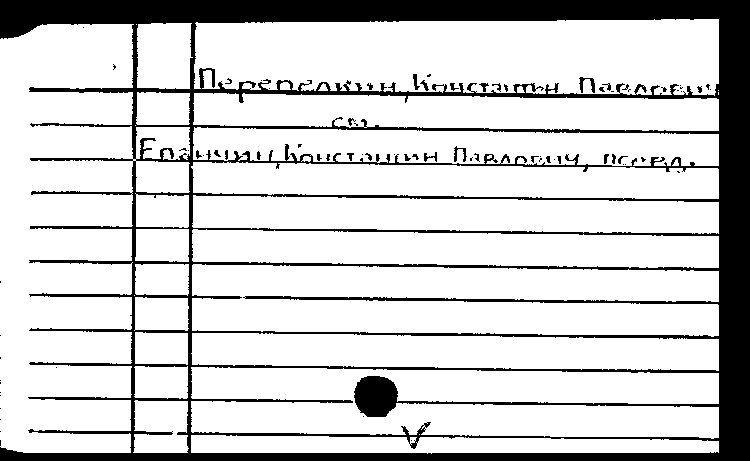 Перепелкин, Константин Павлович
см.
Епанчин, Константин Павлович, псевд.